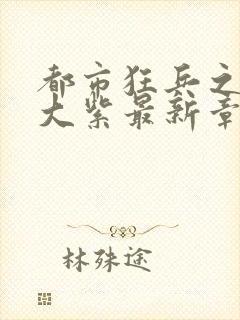 都市狂兵之
大紫最新章
林殊途